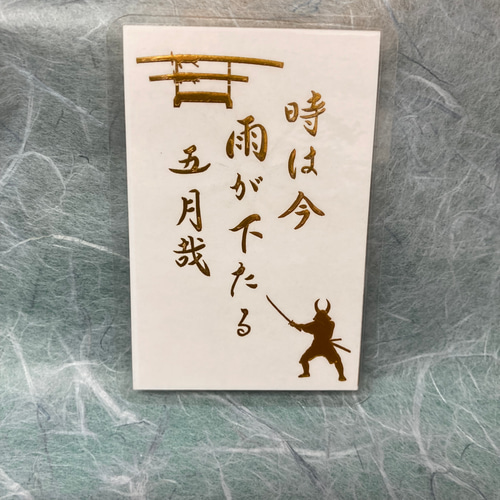 時は今
雨が下たる
五月哉